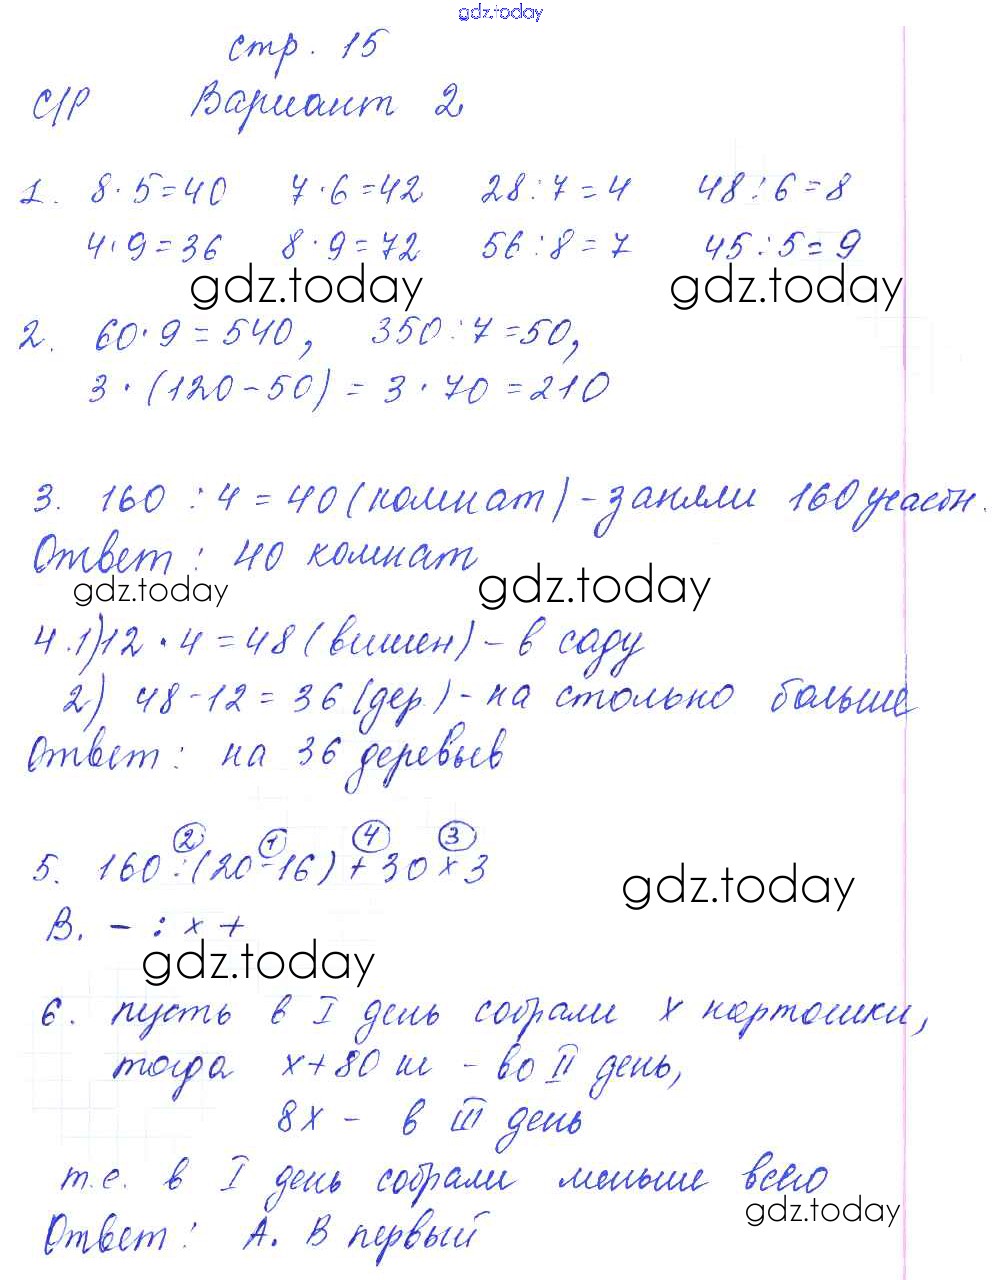 gdz.today
стр. 15
С/Р Вариант 2
1. 8·5=40 7·6=42 28:7=4 48:6=8
4·9=36 8·9=72 56:8=7 45:5=9
gdz.today gdz.today
2. 60·9=540, 350:7=50,
3·(120-50)=3·70=210
3. 160:4=40(комнат)-заняли 160 участн.
Ответ: 40 комнат
gdz.today gdz.today
4.1)12·4=48(вишен)-в саду
2) 48-12=36(дер.)-на столько больше
Ответ: на 36 деревьев
2 1 4 3
5. 160:(20-16)+30×3
gdz.today
В. - : × +
gdz.today
6. пусть в I день собрали х картошки,
тогда х+80 ш - во II день,
8х - в III день
т.е. в I день собрали меньше всего
gdz.today
Ответ: А. В первый